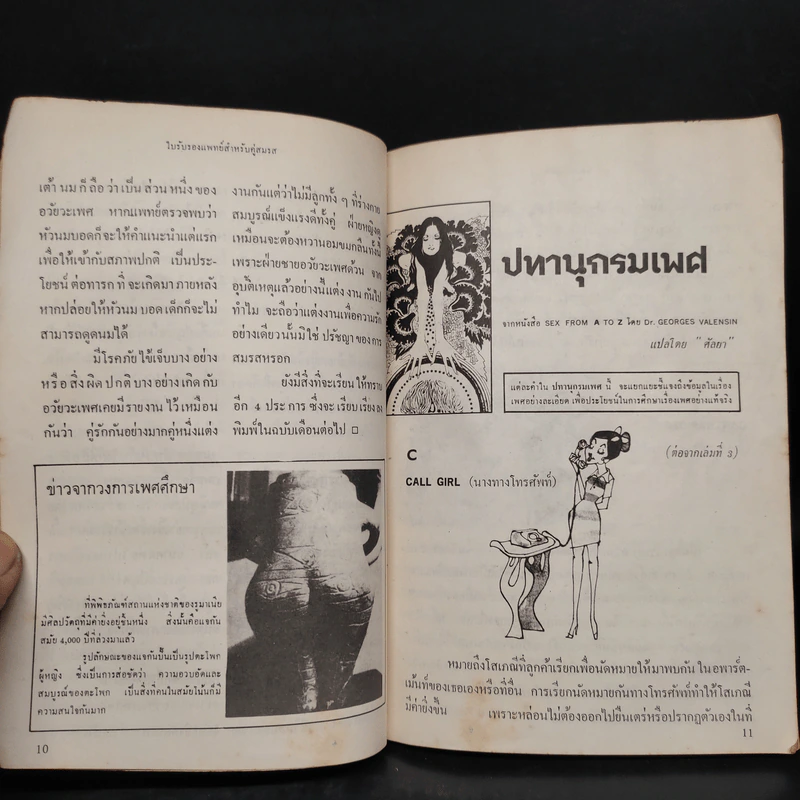 ใบรับรองแพทย์สำหรับคู่สมรส
เต้านมก็ถือว่าเป็นส่วนหนึ่งของ
อวัยวะเพศ หากแพทย์ตรวจพบว่า
หัวนมบอดก็จะให้คำแนะนำแต่แรก
เพื่อให้เข้ากับสภาพปกติ เป็นประ-
โยชน์ต่อทารกที่จะเกิดมาภายหลัง
หากปล่อยให้หัวนมบอดเด็กก็จะไม่
สามารถดูดนมได้
มีโรคภัยไข้เจ็บบางอย่าง
หรือสิ่งผิดปกติบางอย่างเกิดกับ
อวัยวะเพศเคยมีรายงานไว้เหมือน
กันว่า คู่รักกันอย่างมากคู่หนึ่งแต่ง
งานกันแต่ว่าไม่มีลูกทั้ง ๆ ที่ร่างกาย
สมบูรณ์แข็งแรงดีทั้งคู่ ฝ่ายหญิงดู
เหมือนจะต้องหวานอมขมกลืนทั้งนี้
เพราะฝ่ายชายอวัยวะเพศด้วน จาก
อุบัติเหตุแล้วอย่างนี้แต่งงานกันไป
ทำไม จะถือว่าแต่งงานเพื่อความรัก
อย่างเดียวนั้นมิใช่ปรัชญาของการ
สมรสหรอก
ยังมีสิ่งที่จะเรียนให้ทราบ
อีก 4 ประการซึ่งจะเรียบเรียงลง
พิมพ์ในฉบับเดือนต่อไป □
ข่าวจากวงการเพศศึกษา
ที่พิพิธภัณฑ์สถานแห่งชาติของรูมาเนีย
มีศิลปวัตถุที่มีค่ายิ่งอยู่ชิ้นหนึ่ง สิ่งนั้นคือแจกัน
สมัย 4,000 ปีที่ล่วงมาแล้ว
รูปลักษณะของแจกันปั้นเป็นรูปตะโพก
ผู้หญิง ซึ่งเป็นการส่อชัดว่า ความอวบอัดและ
สมบูรณ์ของตะโพก เป็นสิ่งที่คนในสมัยโน้นก็มี
ความสนใจกันมาก
10
ปทานุกรมเพศ
จากหนังสือ SEX FROM A TO Z โดย Dr. GEORGES VALENSIN
แปลโดย "ศัลยา"
แต่ละคำใน ปทานุกรมเพศ นี้ จะแยกแยะชี้แจงถึงข้อมูลในเรื่อง
เพศอย่างละเอียด เพื่อประโยชน์ในการศึกษาเรื่องเพศอย่างแท้จริง
C
(ต่อจากเล่มที่ 3)
CALL GIRL (นางทางโทรศัพท์)
หมายถึงโสเภณีที่ลูกค้าเรียกเพื่อนัดหมายให้มาพบกัน ในอพาร์ต-
เม้นท์ของเธอเองหรือที่อื่น การเรียกนัดหมายกันทางโทรศัพท์ทำให้โสเภณี
มีค่ายิ่งขึ้น เพราะหล่อนไม่ต้องออกไปยืนเตร่หรือปรากฏตัวเองในที่
11